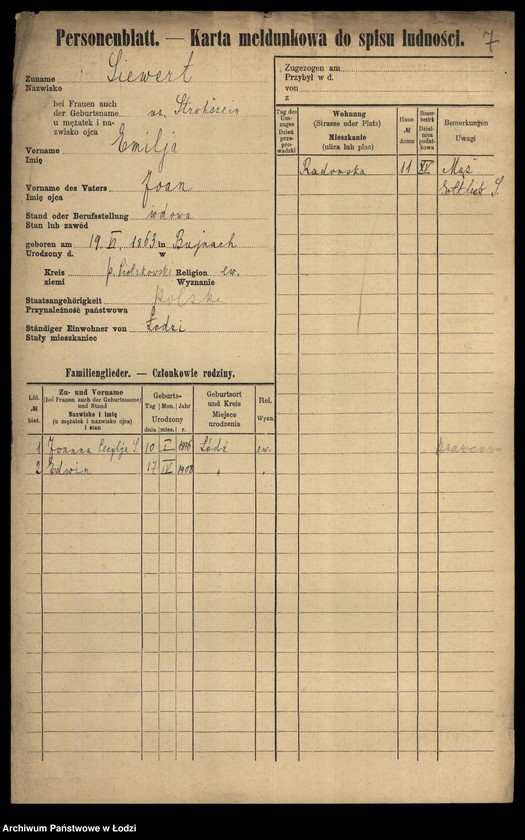 Personenblatt. — Karta meldunkowa do spisu ludności. 7
Zuname Siewert
Nazwisko
bei Frauen auch
der Geburtsname
u mężatek i na-
zwisko ojca
Vorname Emilja
Imię
Vorname des Vaters Joan
Imię ojca
Stand oder Berufsstellung wdowa
Stan lub zawód
geboren am 19. VI. 1863 in Bujnach
Urodzony d. w
Kreis p. Piotrkowski Religion ew.
ziemi Wyznanie
Staatsangehörigkeit polska
Przynależność państwowa
Ständiger Einwohner von Łodzi
Stały mieszkaniec
Zugezogen am
Przybył w d.
von
z
Tag des Um-
zuges
Dzień
prze-
prowadzki
Wohnung
(Strasse oder Platz)
Mieszkanie
(ulica lub plac)
Haus-
№
domu
Steuer-
bezirk
Dziel-
nica
podat-
kowa
Bemerkungen
Uwagi
Radomska 11 XV Mąż
Gottlieb S.
Familienglieder. — Członkowie rodziny.
Lfd.
№
bież.
Zu- und Vorname
(bei Frauen auch der Geburtsname)
und Stand
Nazwisko i imię
(u mężatek i nazwisko ojca)
i stan
Geburts-
Tag Mon. Jahr
Urodzony
dnia mies. r.
Geburtsort
und Kreis
Miejsce
urodzenia
Rel.
Wyzn.
1 Joanna Cecylja S. 10 I Łódź ew.
2 Edwin 17 IV 1908 " "
Archiwum Państwowe w Łodzi